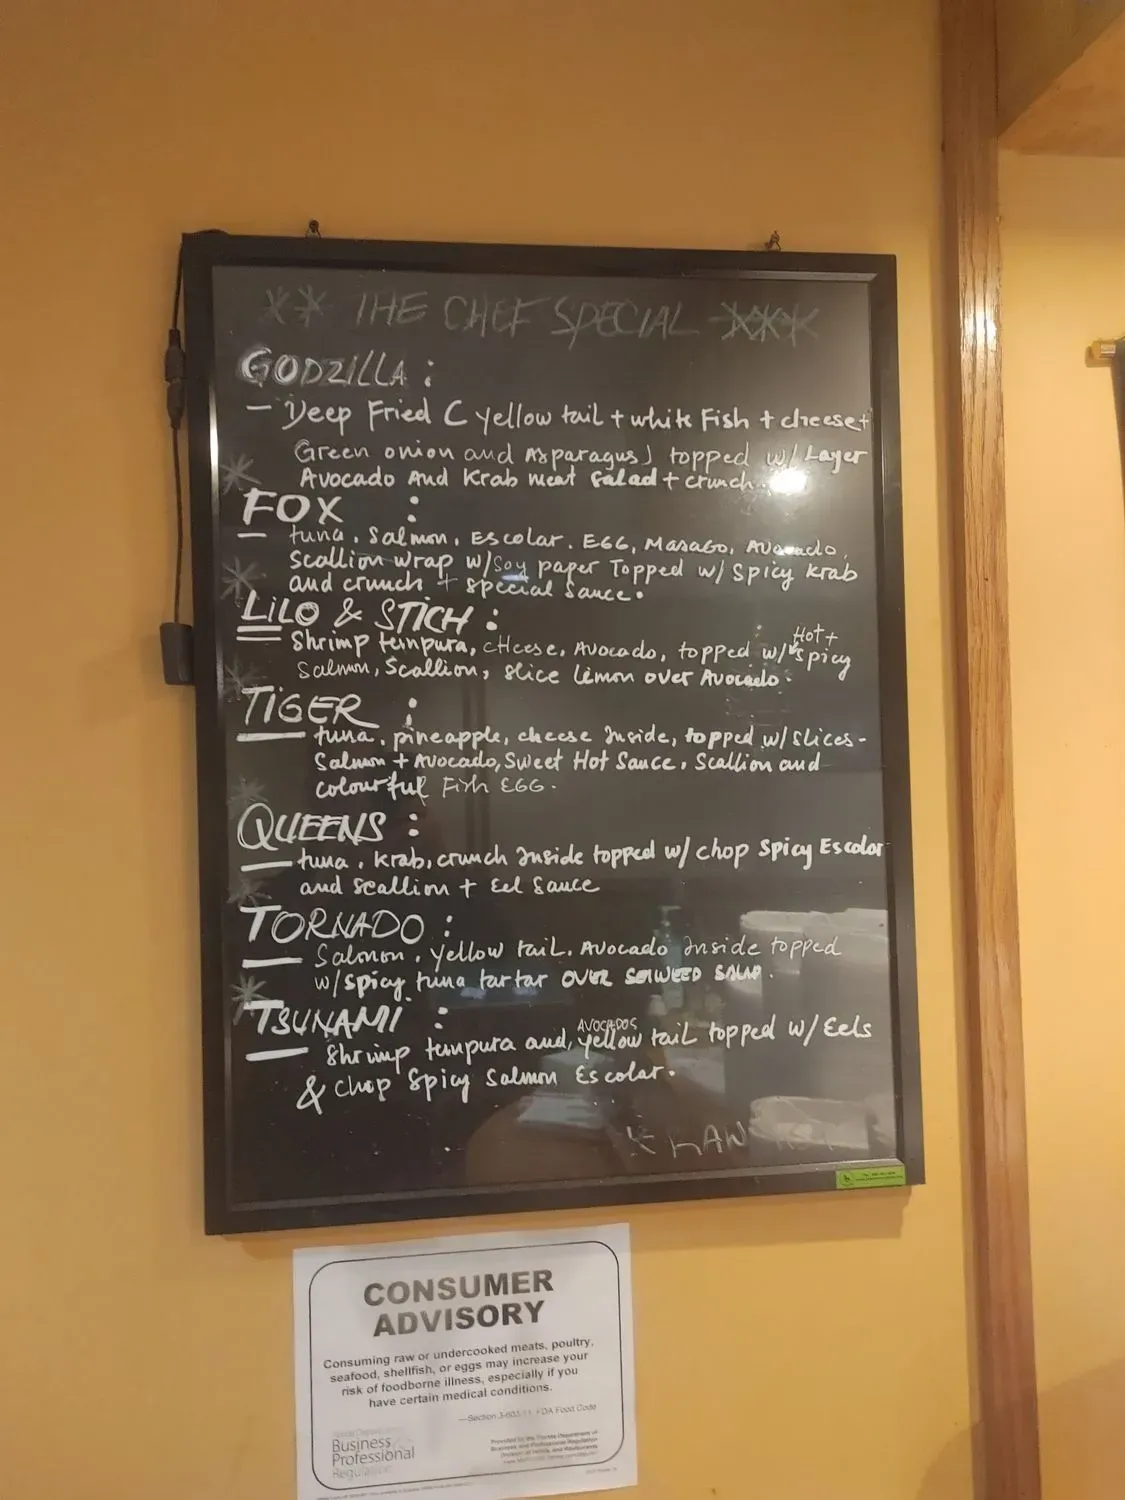 ** THE CHEF SPECIAL ***
GODZILLA :
- Deep Fried ( yellow tail + white Fish + cheese +
Green onion and Asparagus) topped w/ Layer
Avocado And Krab meat Salad + crunch.
FOX :
- tuna, Salmon, Escolar, EGG, Masago, Avocado,
Scallion wrap w/ Soy paper Topped w/ Spicy Krab
and crunch + special Sauce.
LILO & STICH :
Hot +
Shrimp tempura, cHeese, Avocado, topped w/ spicy
Salmon, Scallion, slice lemon over Avocado.
TIGER :
tuna, pineapple, cheese Inside, topped w/ slices-
Salmon + Avocado, Sweet Hot Sauce, Scallion and
colourful Fish EGG.
QUEENS :
tuna, Krab, crunch Inside topped w/ chop Spicy Escolar
and Scallion + Eel Sauce
TORNADO :
Salmon, yellow tail, Avocado Inside topped
w/ spicy tuna tartar OVER SEAWEED SALAD.
TSUNAMI :
AVOCADOS
Shrimp tempura and, yellow tail topped w/ Eels
& chop Spicy Salmon Escolar.
CONSUMER
ADVISORY
Consuming raw or undercooked meats, poultry,
seafood, shellfish, or eggs may increase your
risk of foodborne illness, especially if you
have certain medical conditions.
—Section 3-603.11, FDA Food Code
Business
Professional
Regulation
Provided by the Florida Department of
Business and Professional Regulation
Division of Hotels and Restaurants